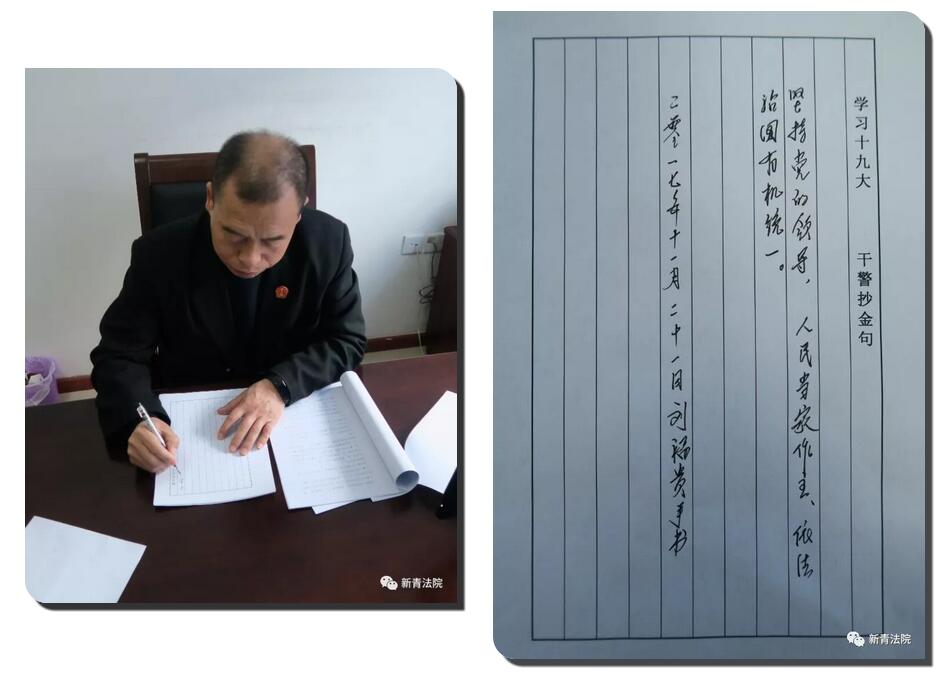 学习十九大 干警抄金句
坚持党的领导，人民当家作主、依法
治国有机统一。
二零一七年十一月二十一日刘福贵手书
新青法院
新青法院